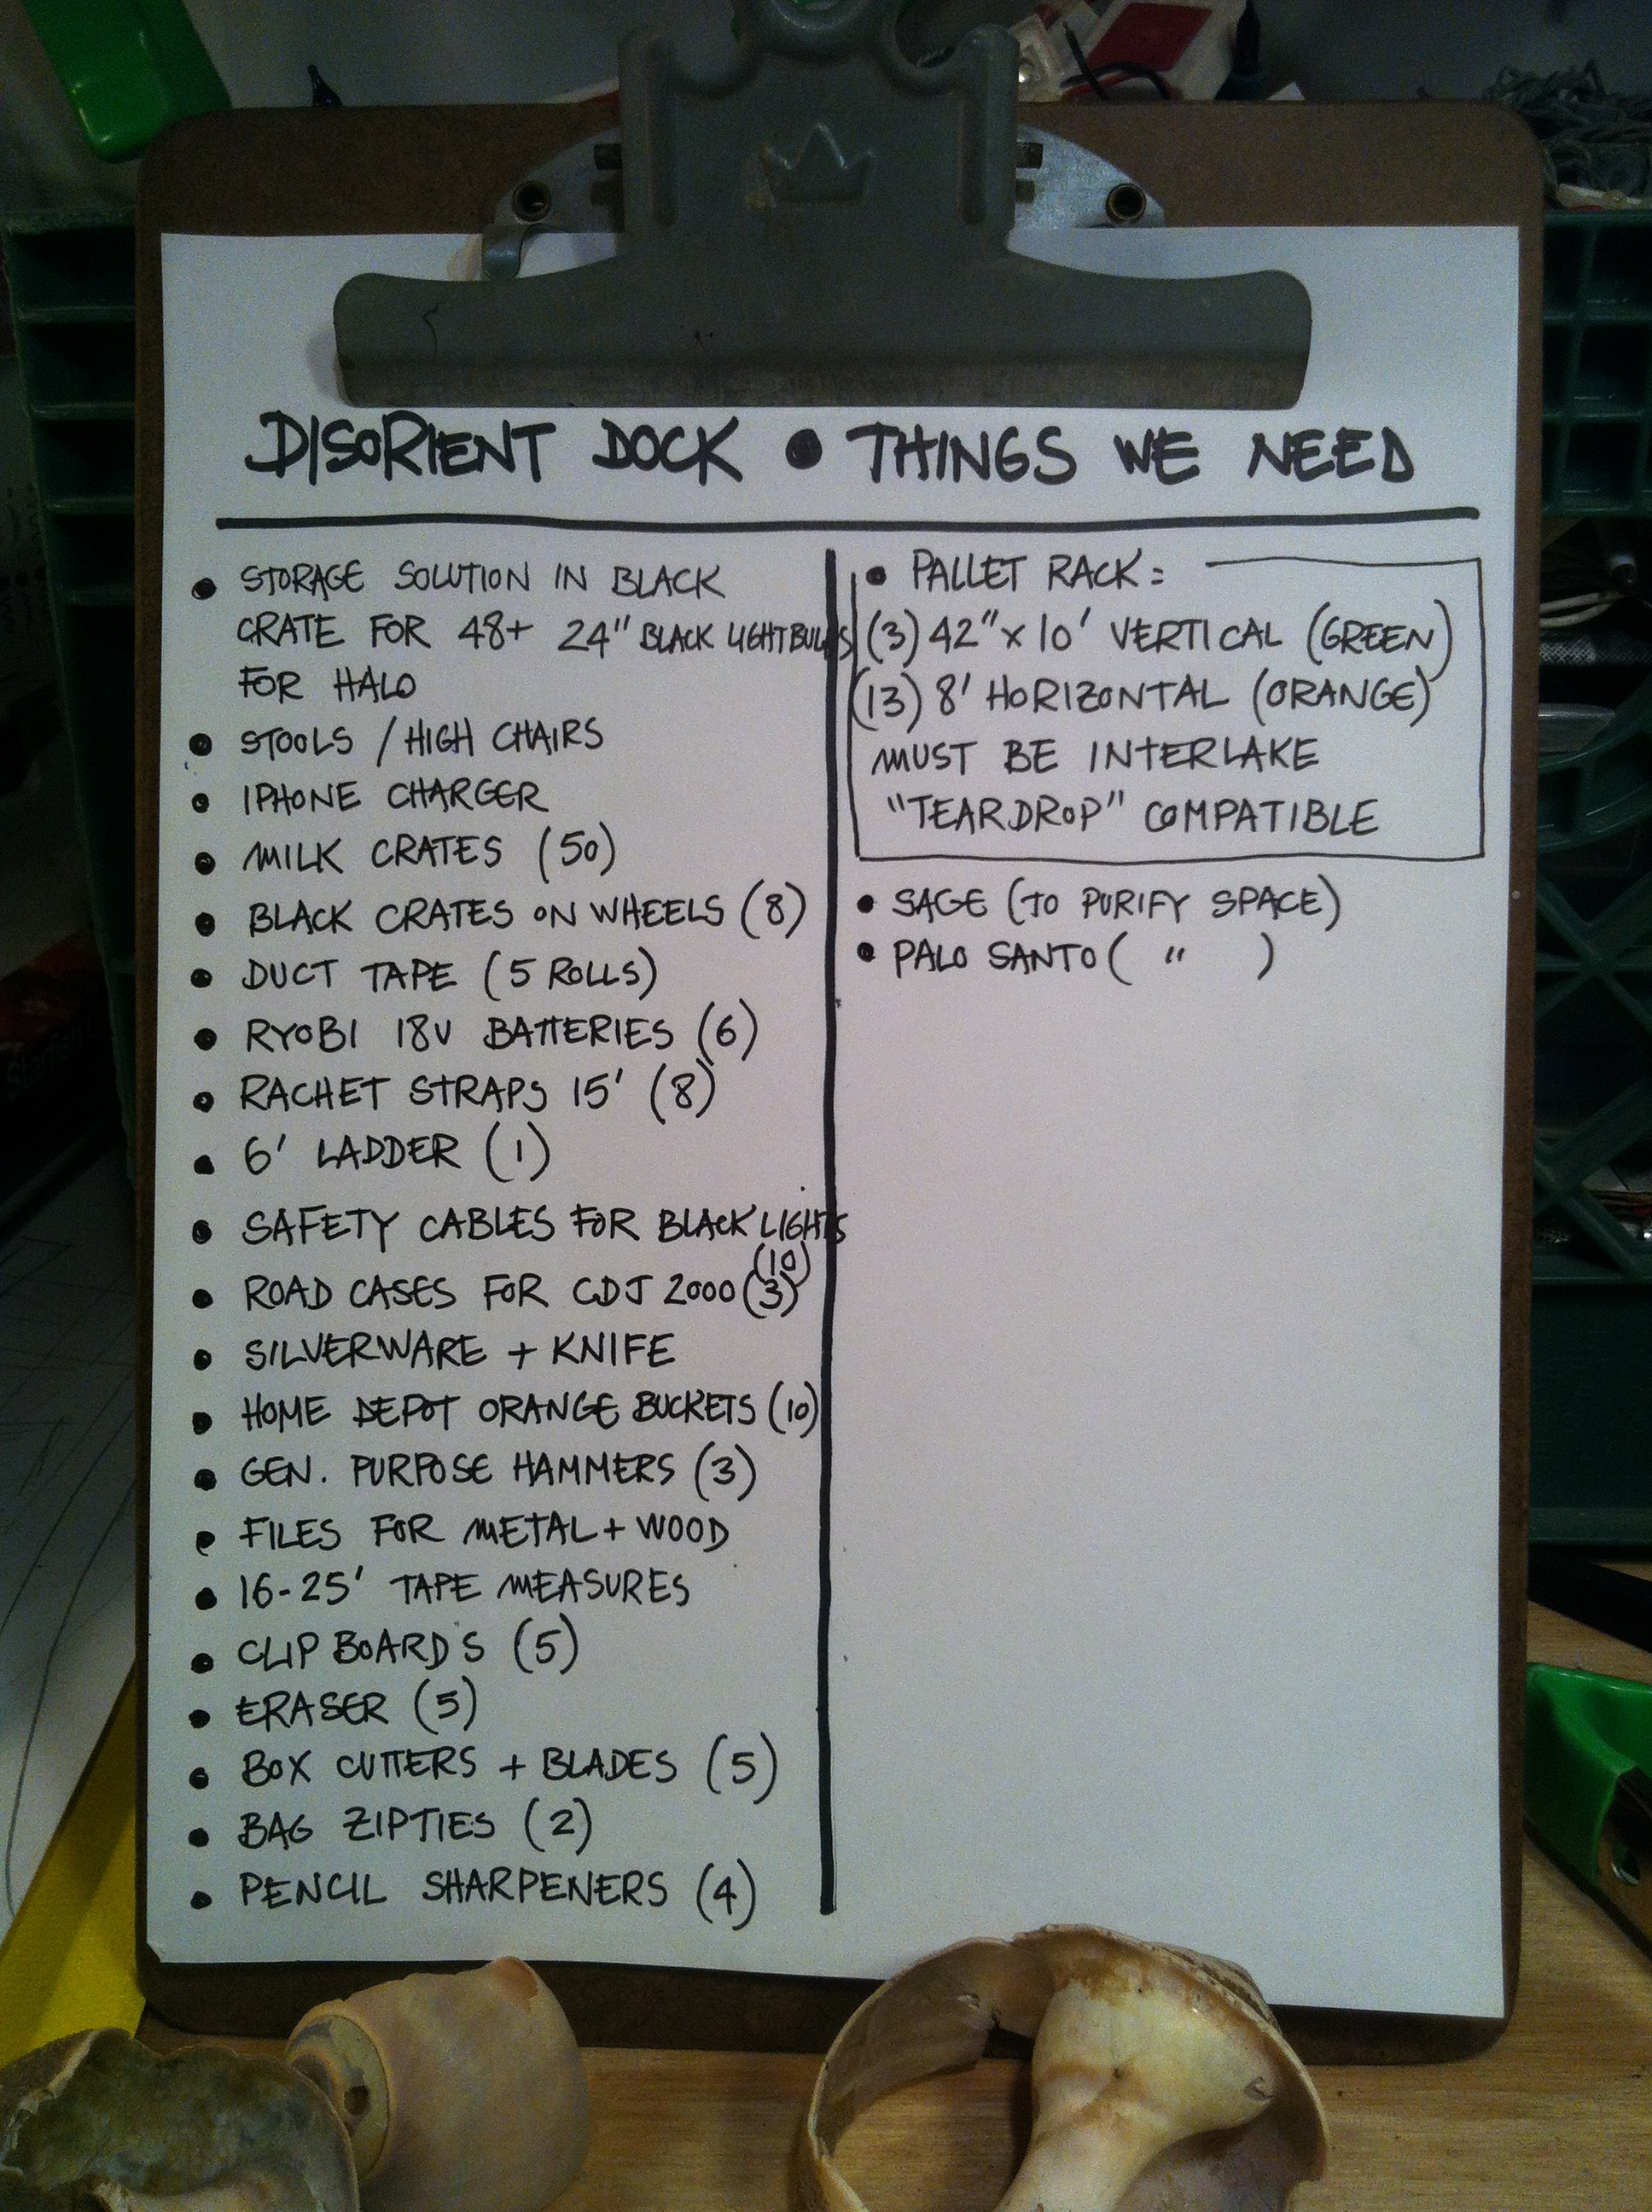 DISORIENT DOCK • THINGS WE NEED
• STORAGE SOLUTION IN BLACK
CRATE FOR 48+ 24" BLACK LIGHT BULBS
FOR HALO
• STOOLS / HIGH CHAIRS
• IPHONE CHARGER
• MILK CRATES (50)
• BLACK CRATES ON WHEELS (8)
• DUCT TAPE (5 ROLLS)
• RYOBI 18V BATTERIES (6)
• RACHET STRAPS 15' (8)
• 6' LADDER (1)
• SAFETY CABLES FOR BLACK LIGHTS
(10)
• ROAD CASES FOR CDJ 2000 (3)
• SILVERWARE + KNIFE
• HOME DEPOT ORANGE BUCKETS (10)
• GEN. PURPOSE HAMMERS (3)
• FILES FOR METAL + WOOD
• 16-25' TAPE MEASURES
• CLIP BOARDS (5)
• ERASER (5)
• BOX CUTTERS + BLADES (5)
• BAG ZIPTIES (2)
• PENCIL SHARPENERS (4)
• PALLET RACK:
(3) 42" x 10' VERTICAL (GREEN)
(13) 8' HORIZONTAL (ORANGE)
MUST BE INTERLAKE
"TEARDROP" COMPATIBLE
• SAGE (TO PURIFY SPACE)
• PALO SANTO ( " )